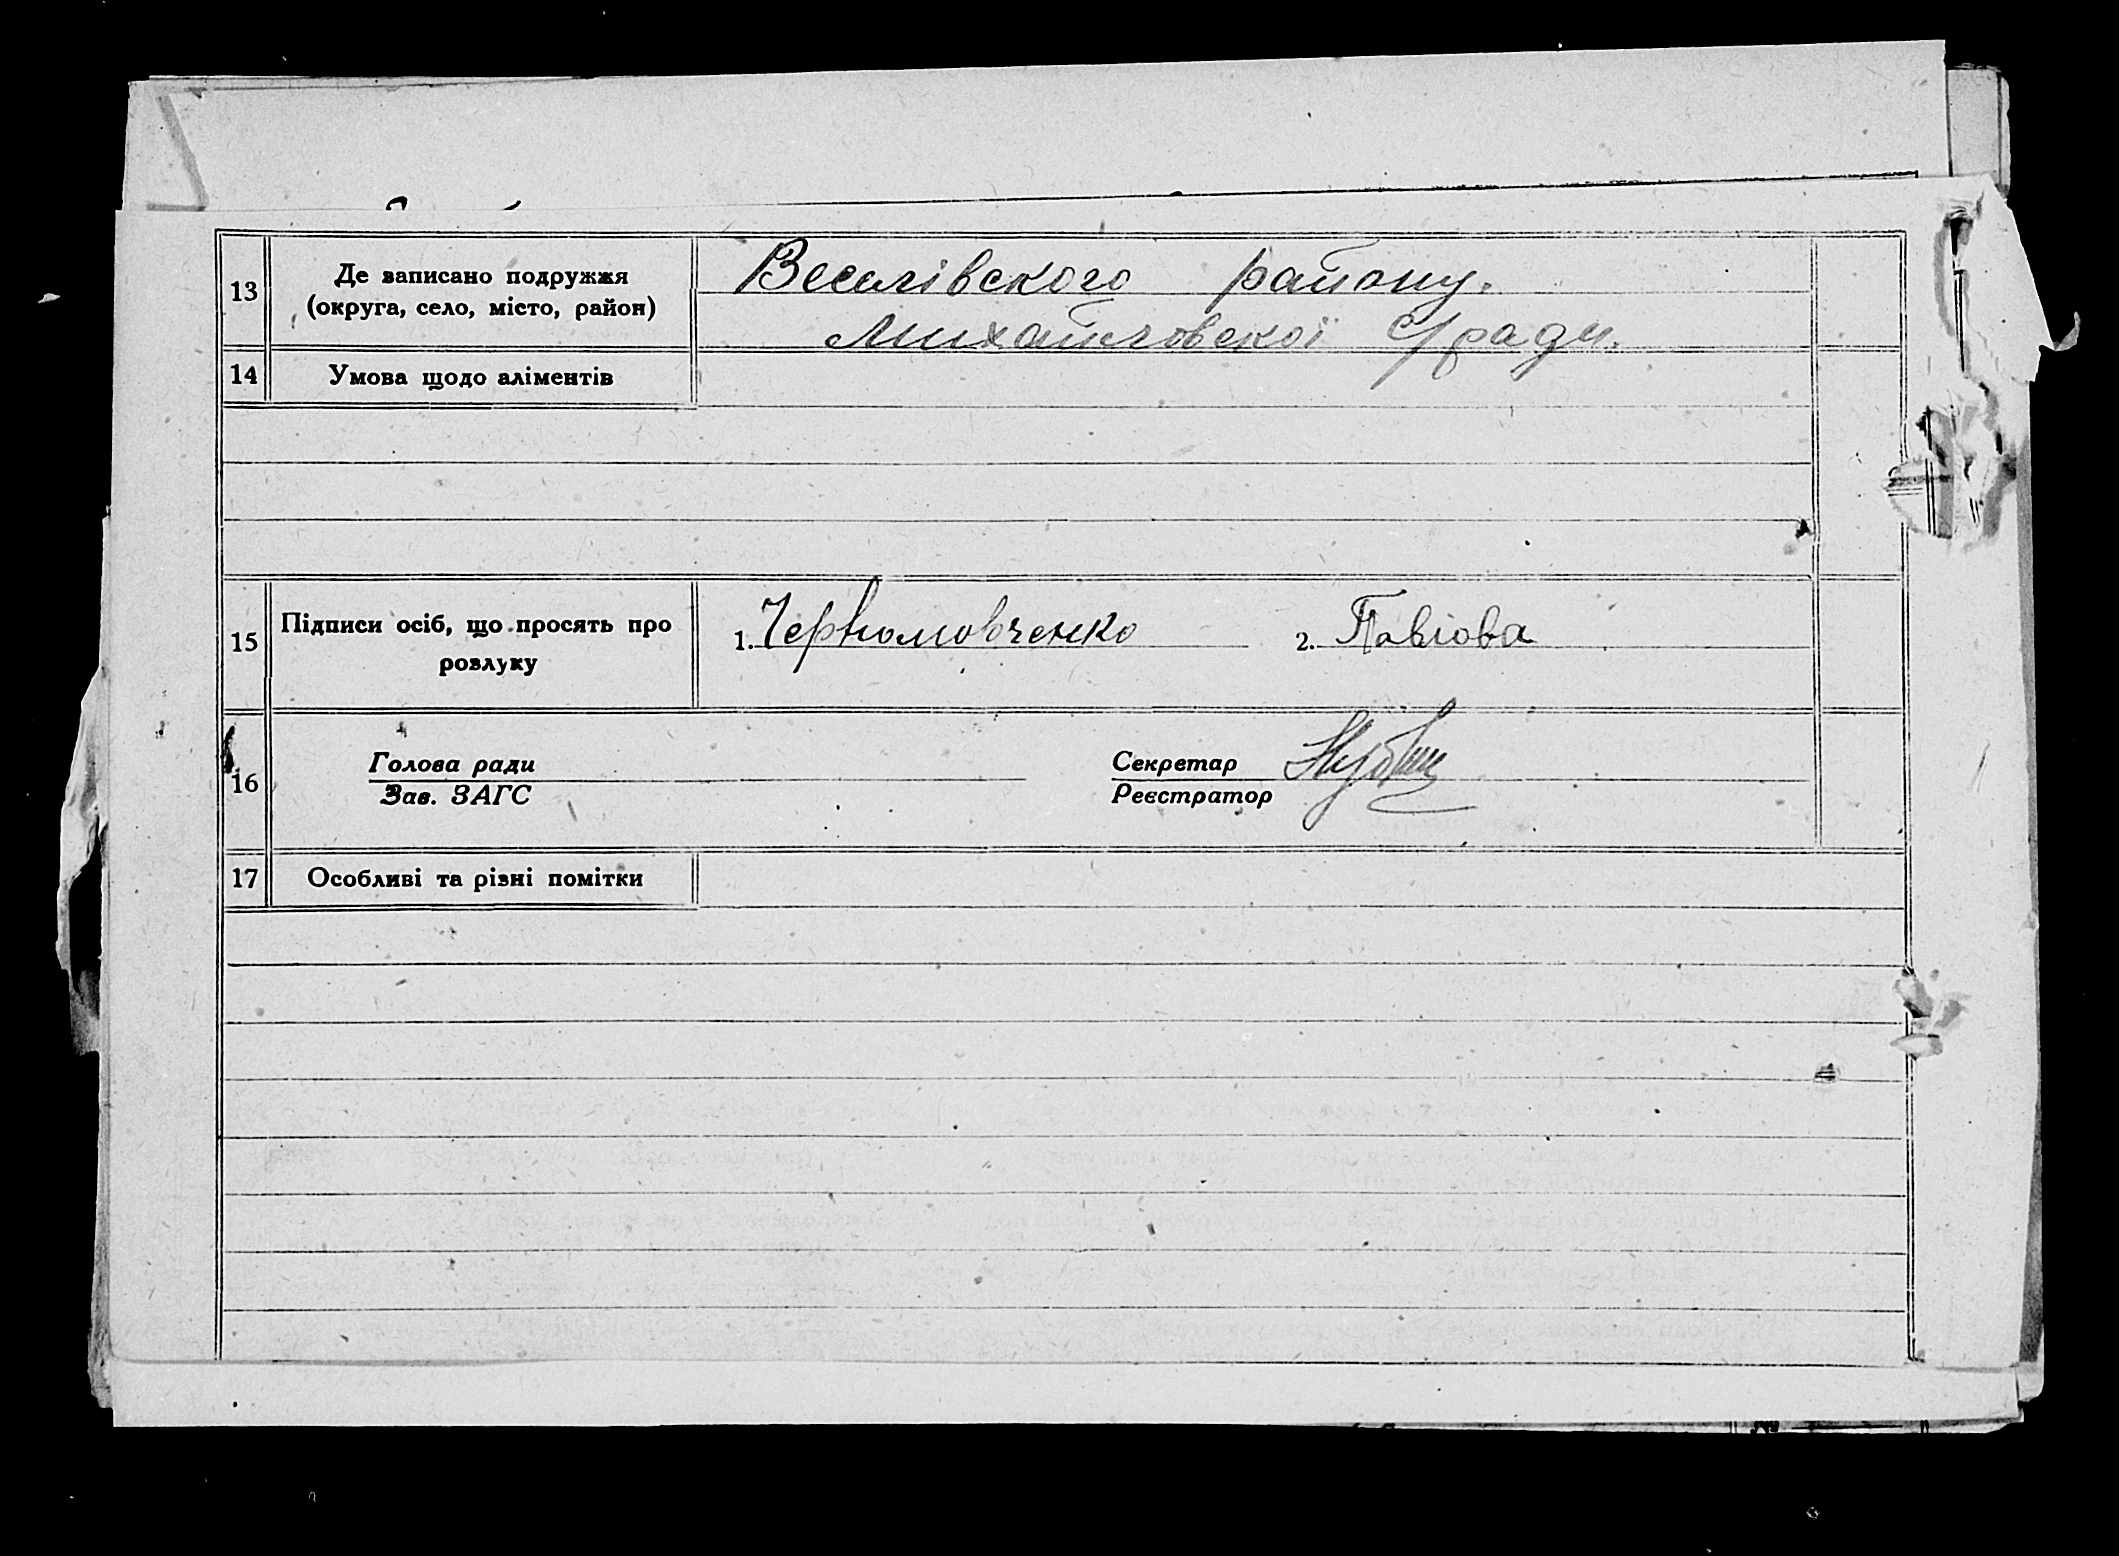 13
Де записано подружжя
(округа, село, місто, район)
Веселівского району.
Михайловскої с/ради.
14
Умова щодо аліментів
15
Підписи осіб, що просять про
розлуку
1. Черномовченко
2. Павлова
16
Голова ради
Зав. ЗАГС
Секретар
Реєстратор
17
Особливі та різні помітки